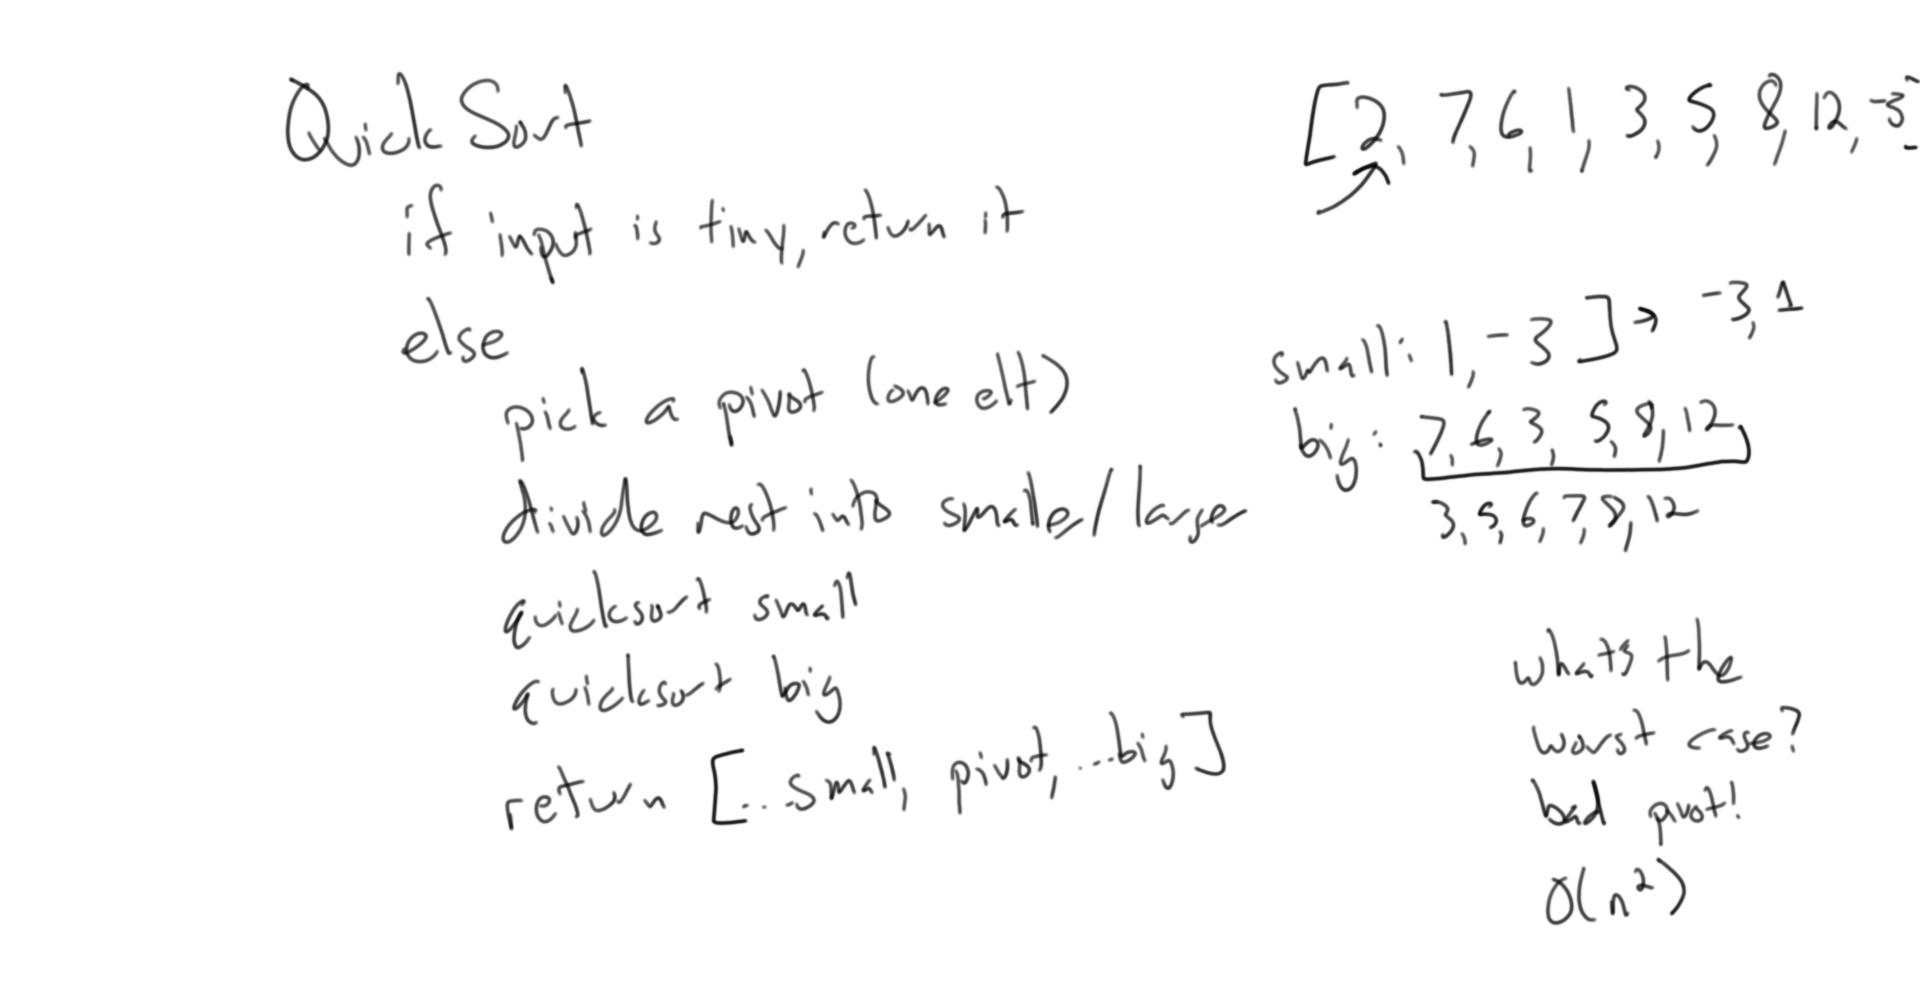 QuickSort
if input is tiny, return it
else
pick a pivot (one elt)
divide rest into smaller/larger
quicksort small
quicksort big
return [...small, pivot, ...big]
[2, 7, 6, 1, 3, 5, 8, 12, -3]
small: 1, -3 ] → -3, 1
big: 7, 6, 3, 5, 8, 12
3, 5, 6, 7, 8, 12
whats the
worst case?
bad pivot!
O(n²)